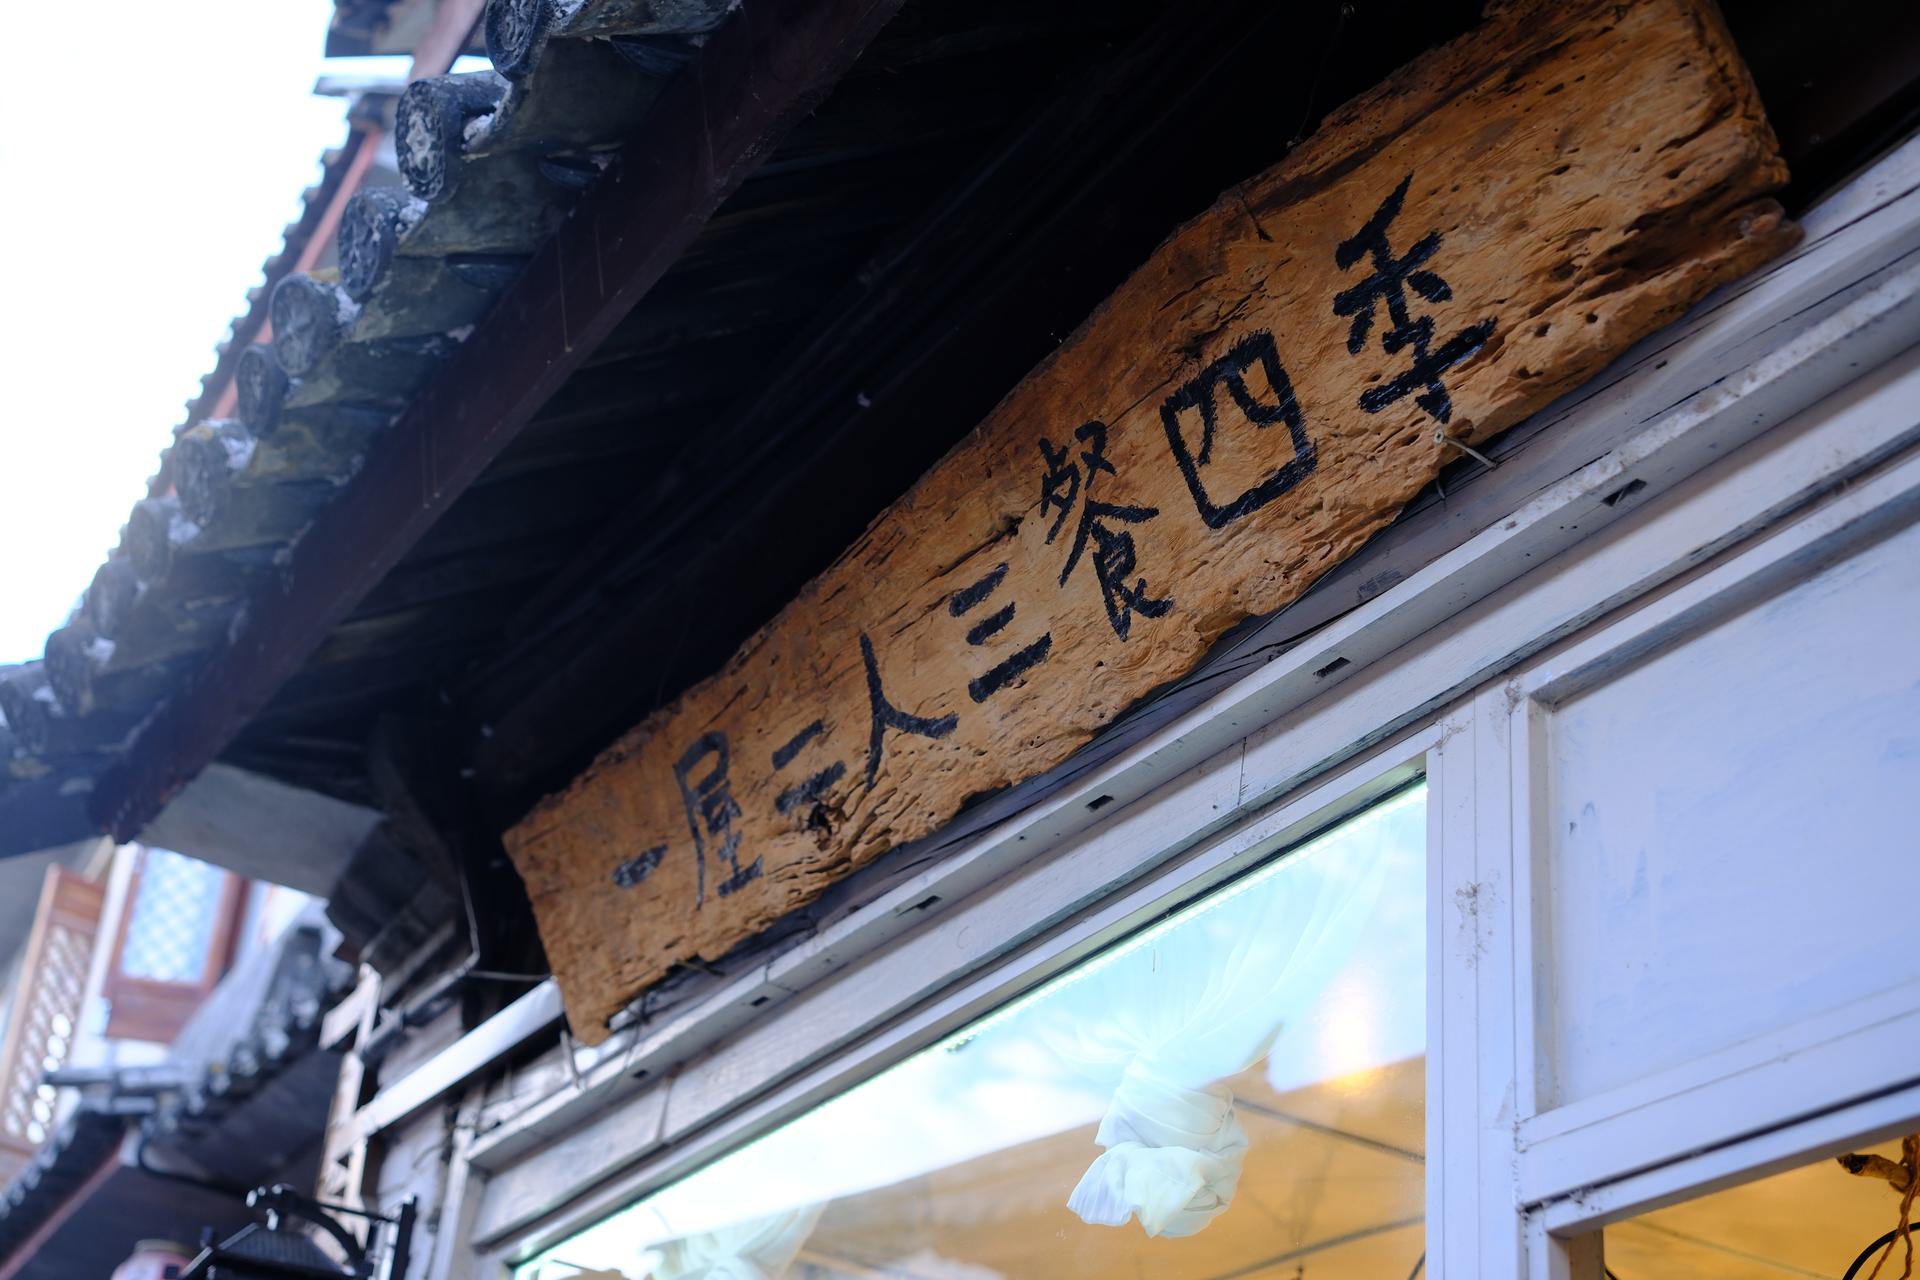 一屋二人三餐四季